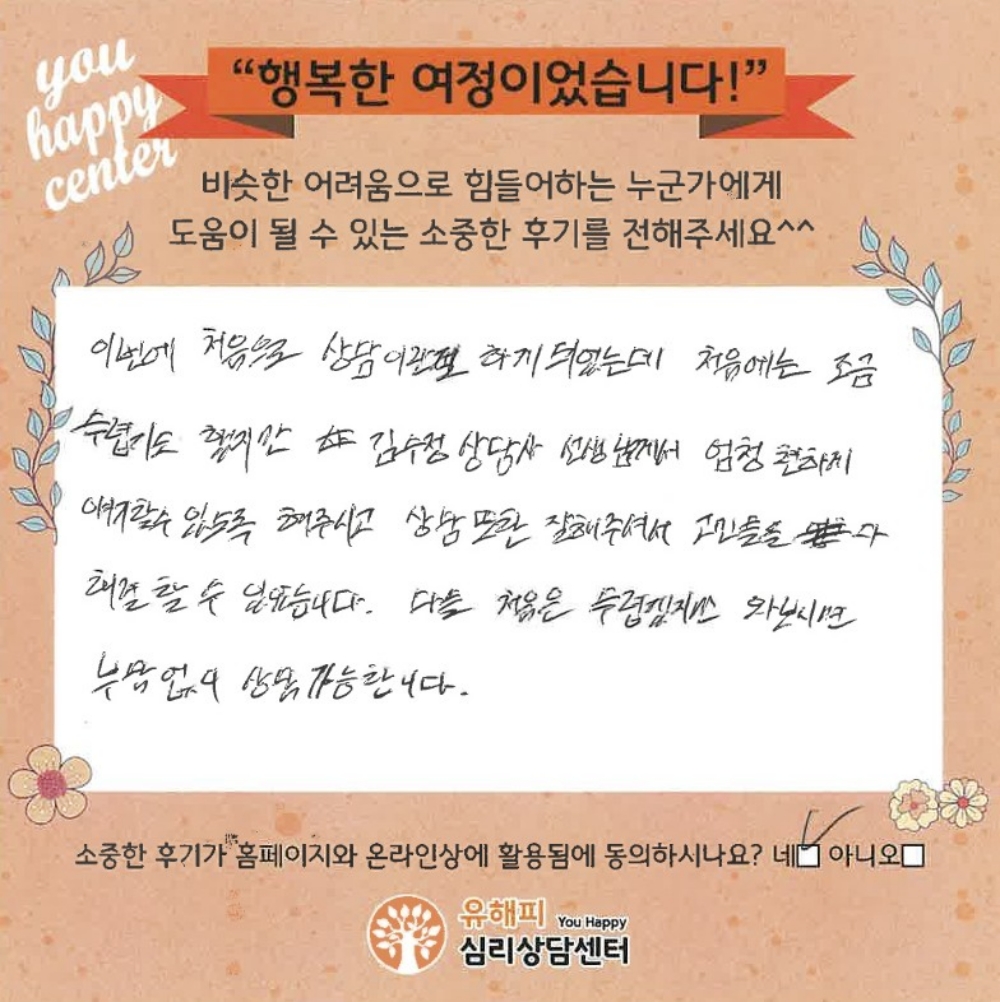 you
happy
center
“행복한 여정이었습니다!”
비슷한 어려움으로 힘들어하는 누군가에게
도움이 될 수 있는 소중한 후기를 전해주세요^^
이번에 처음으로 상담이란 하게 되었는데 처음에는 조금
수렵기도 했지만 김수정 상담사 선생님께서 엄청 편하게
얘기할수 있도록 해주시고 상담 또한 잘해주셔서 고민들을 다
해결 할 수 있었습니다. 다들 처음은 수렵겠지만 와보시면
부담 없이 상담 가능합니다.
소중한 후기가 홈페이지와 온라인상에 활용됨에 동의하시나요? 네☑ 아니오☐
유해피 You Happy
심리상담센터